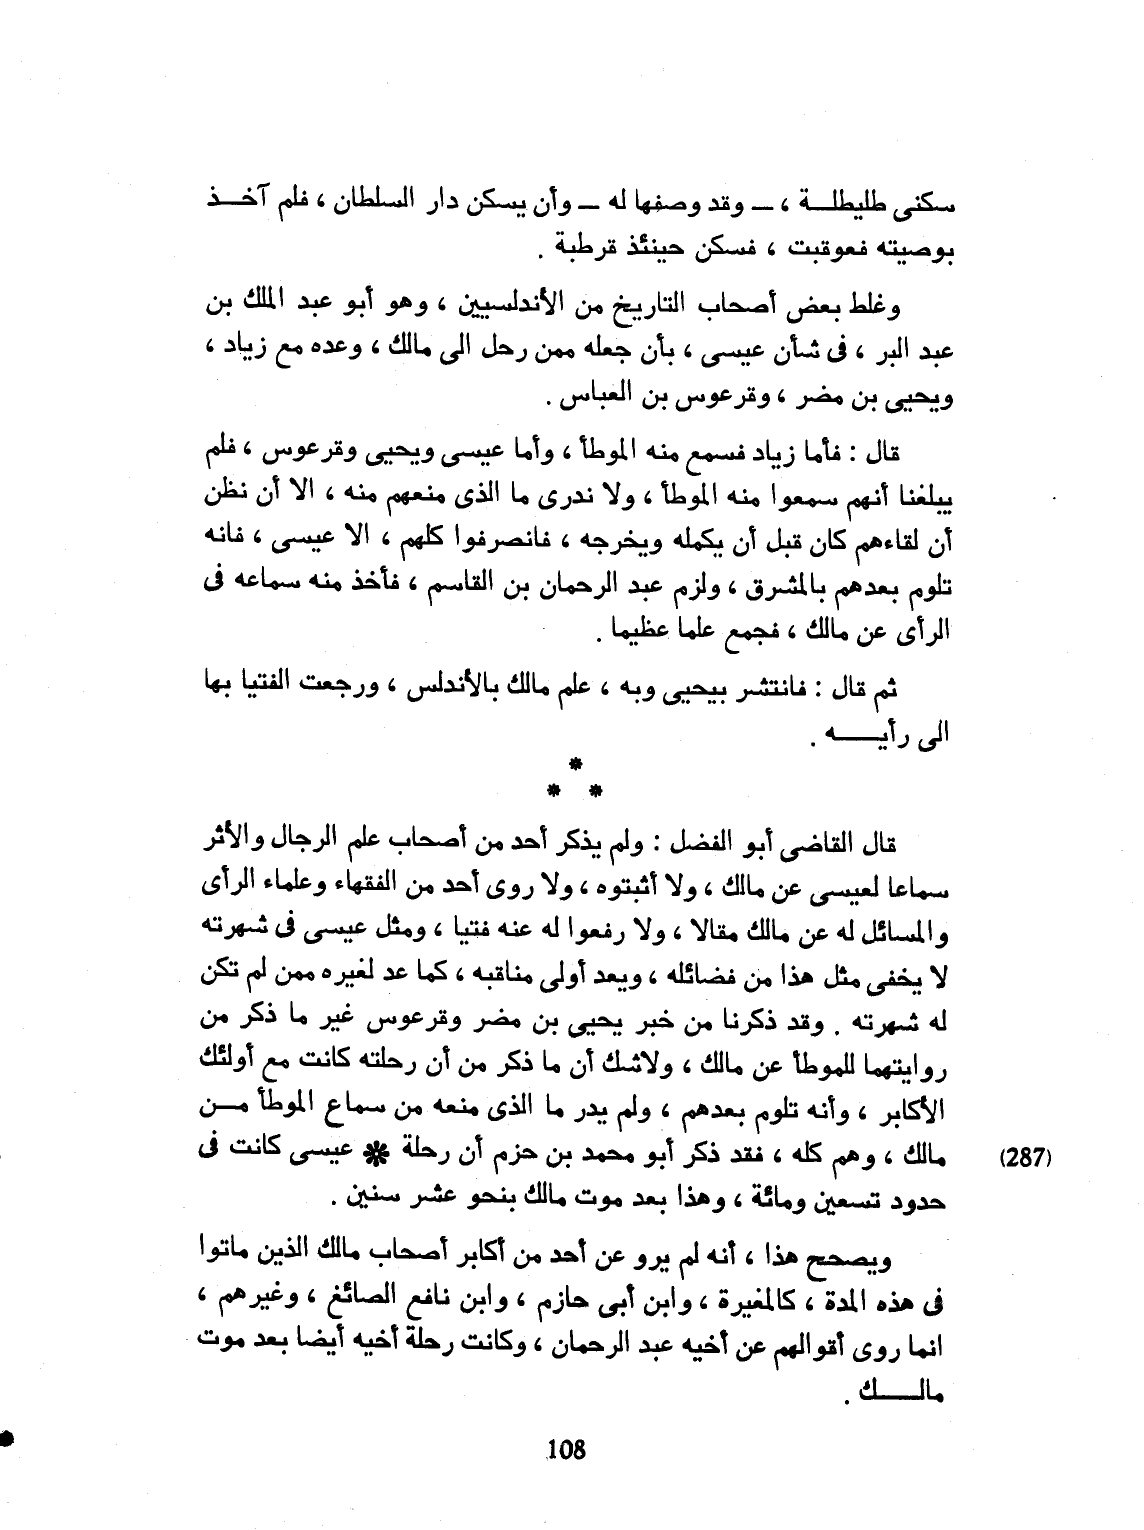 سكنى طليطلـــة ، ــ وقد وصفها له ــ وأن يسكن دار السلطان ، فلم آخـــذ
بوصيته فعوقبت ، فسكن حينئذ قرطبة .
وغلط بعض أصحاب التاريخ من الأندلسيين ، وهو أبو عبد الملك بن
عبد البر ، فى شأن عيسى ، بأن جعله ممن رحل الى مالك ، وعده مع زياد ،
ويحيى بن مضر ، وقرعوس بن العباس .
قال : فأما زياد فسمع منه الموطأ ، وأما عيسى ويحيى وقرعوس ، فلم
يبلغنا أنهم سمعوا منه الموطأ ، ولا ندرى ما الذى منعهم منه ، الا أن نظن
أن لقاءهم كان قبل أن يكمله ويخرجه ، فانصرفوا كلهم ، الا عيسى ، فانه
تلوم بعدهم بالمشرق ، ولزم عبد الرحمان بن القاسم ، فأخذ منه سماعه فى
الرأى عن مالك ، فجمع علما عظيما .
ثم قال : فانتشر بيحيى وبه ، علم مالك بالأندلس ، ورجعت الفتيا بها
الى رأيـــــه .
*
* *
قال القاضى أبو الفضل : ولم يذكر أحد من أصحاب علم الرجال والأثر
سماعا لعيسى عن مالك ، ولا أثبتوه ، ولا روى أحد من الفقهاء وعلماء الرأى
والمسائل له عن مالك مقالا ، ولا رفعوا له عنه فتيا ، ومثل عيسى فى شهرته
لا يخفى مثل هذا من فضائله ، ويعد أولى مناقبه ، كما عد لغيره ممن لم تكن
له شهرته . وقد ذكرنا من خبر يحيى بن مضر وقرعوس غير ما ذكر من
روايتهما للموطأ عن مالك ، ولاشك أن ما ذكر من أن رحلته كانت مع أولئك
الأكابر ، وأنه تلوم بعدهم ، ولم يدر ما الذى منعه من سماع الموطأ مـــن
مالك ، وهم كله ، فقد ذكر أبو محمد بن حزم أن رحلة * عيسى كانت فى (287)
حدود تسعين ومائة ، وهذا بعد موت مالك بنحو عشر سنين .
ويصحح هذا ، أنه لم يرو عن أحد من أكابر أصحاب مالك الذين ماتوا
فى هذه المدة ، كالمغيرة ، وابن أبى حازم ، وابن نافع الصائغ ، وغيرهم ،
انما روى أقوالهم عن أخيه عبد الرحمان ، وكانت رحلة أخيه أيضا بعد موت
مالـــــك .
108